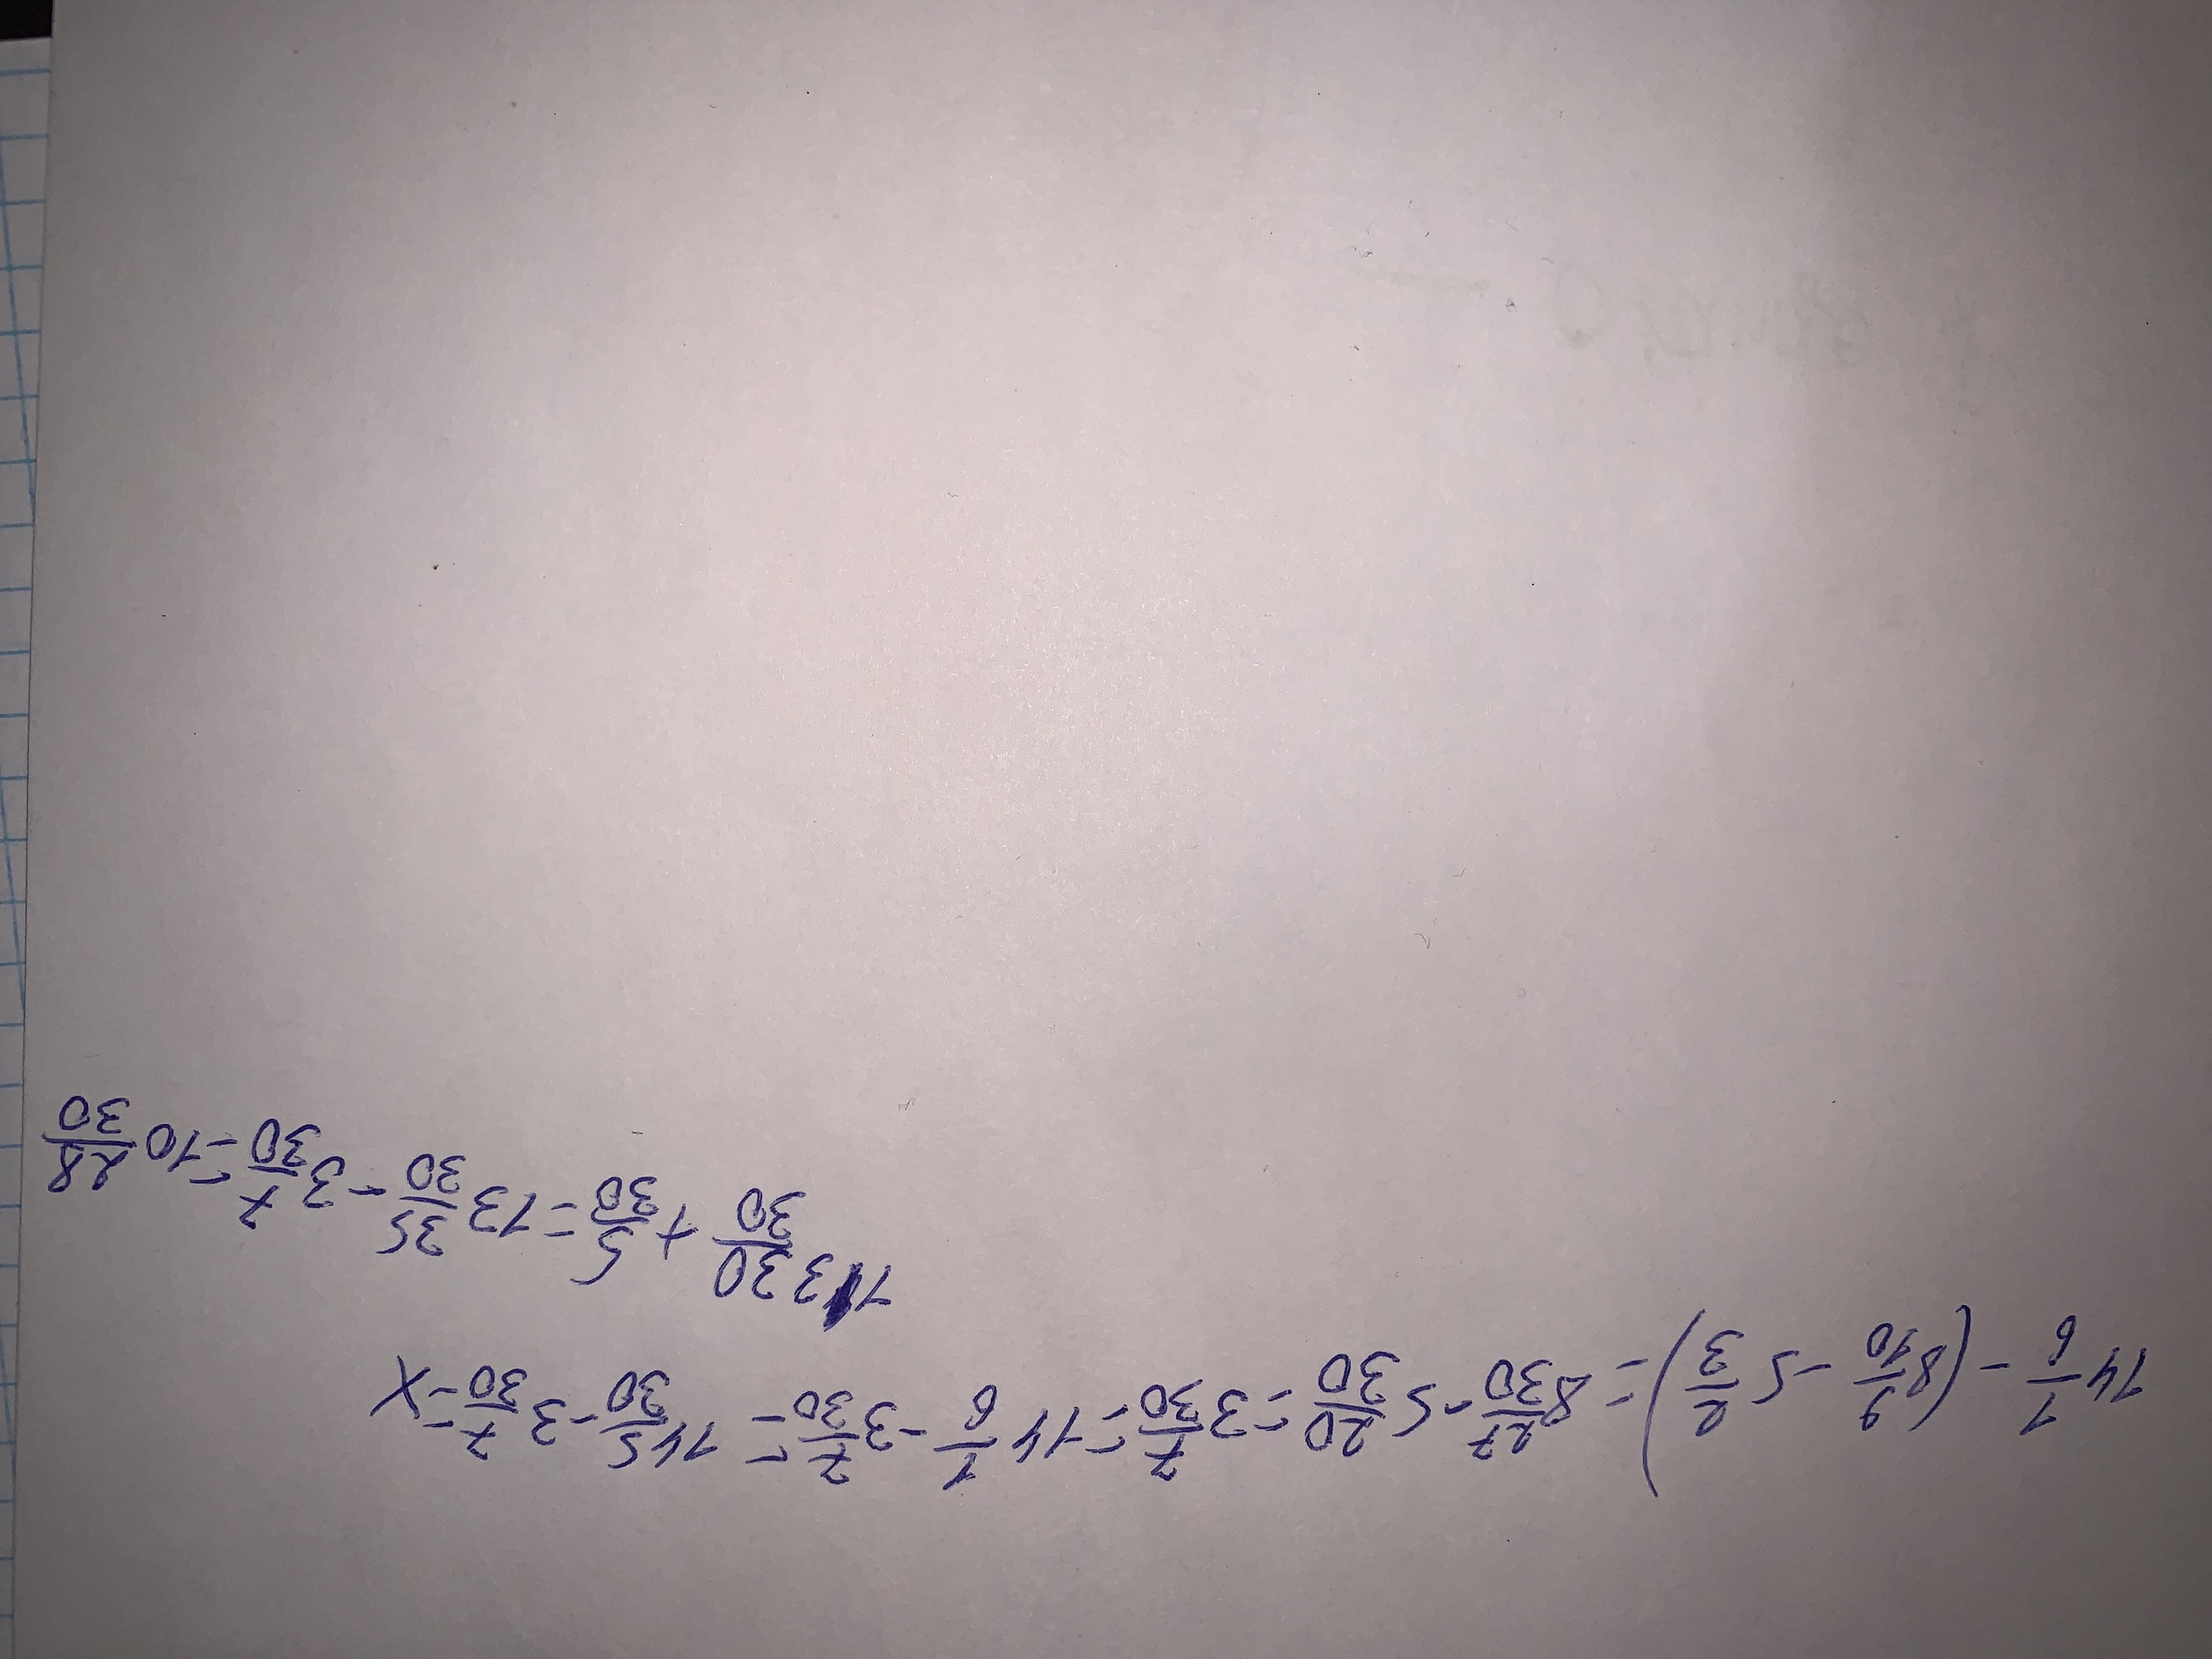 14 1/6 - (8 9/10 - 5 2/3) = 8 27/30 - 5 20/30 = 3 7/30 = 14 1/6 - 3 7/30 = 14 5/30 - 3 7/30 = X
13 30/30 + 5/30 = 13 35/30 - 3 7/30 = 10 28/30